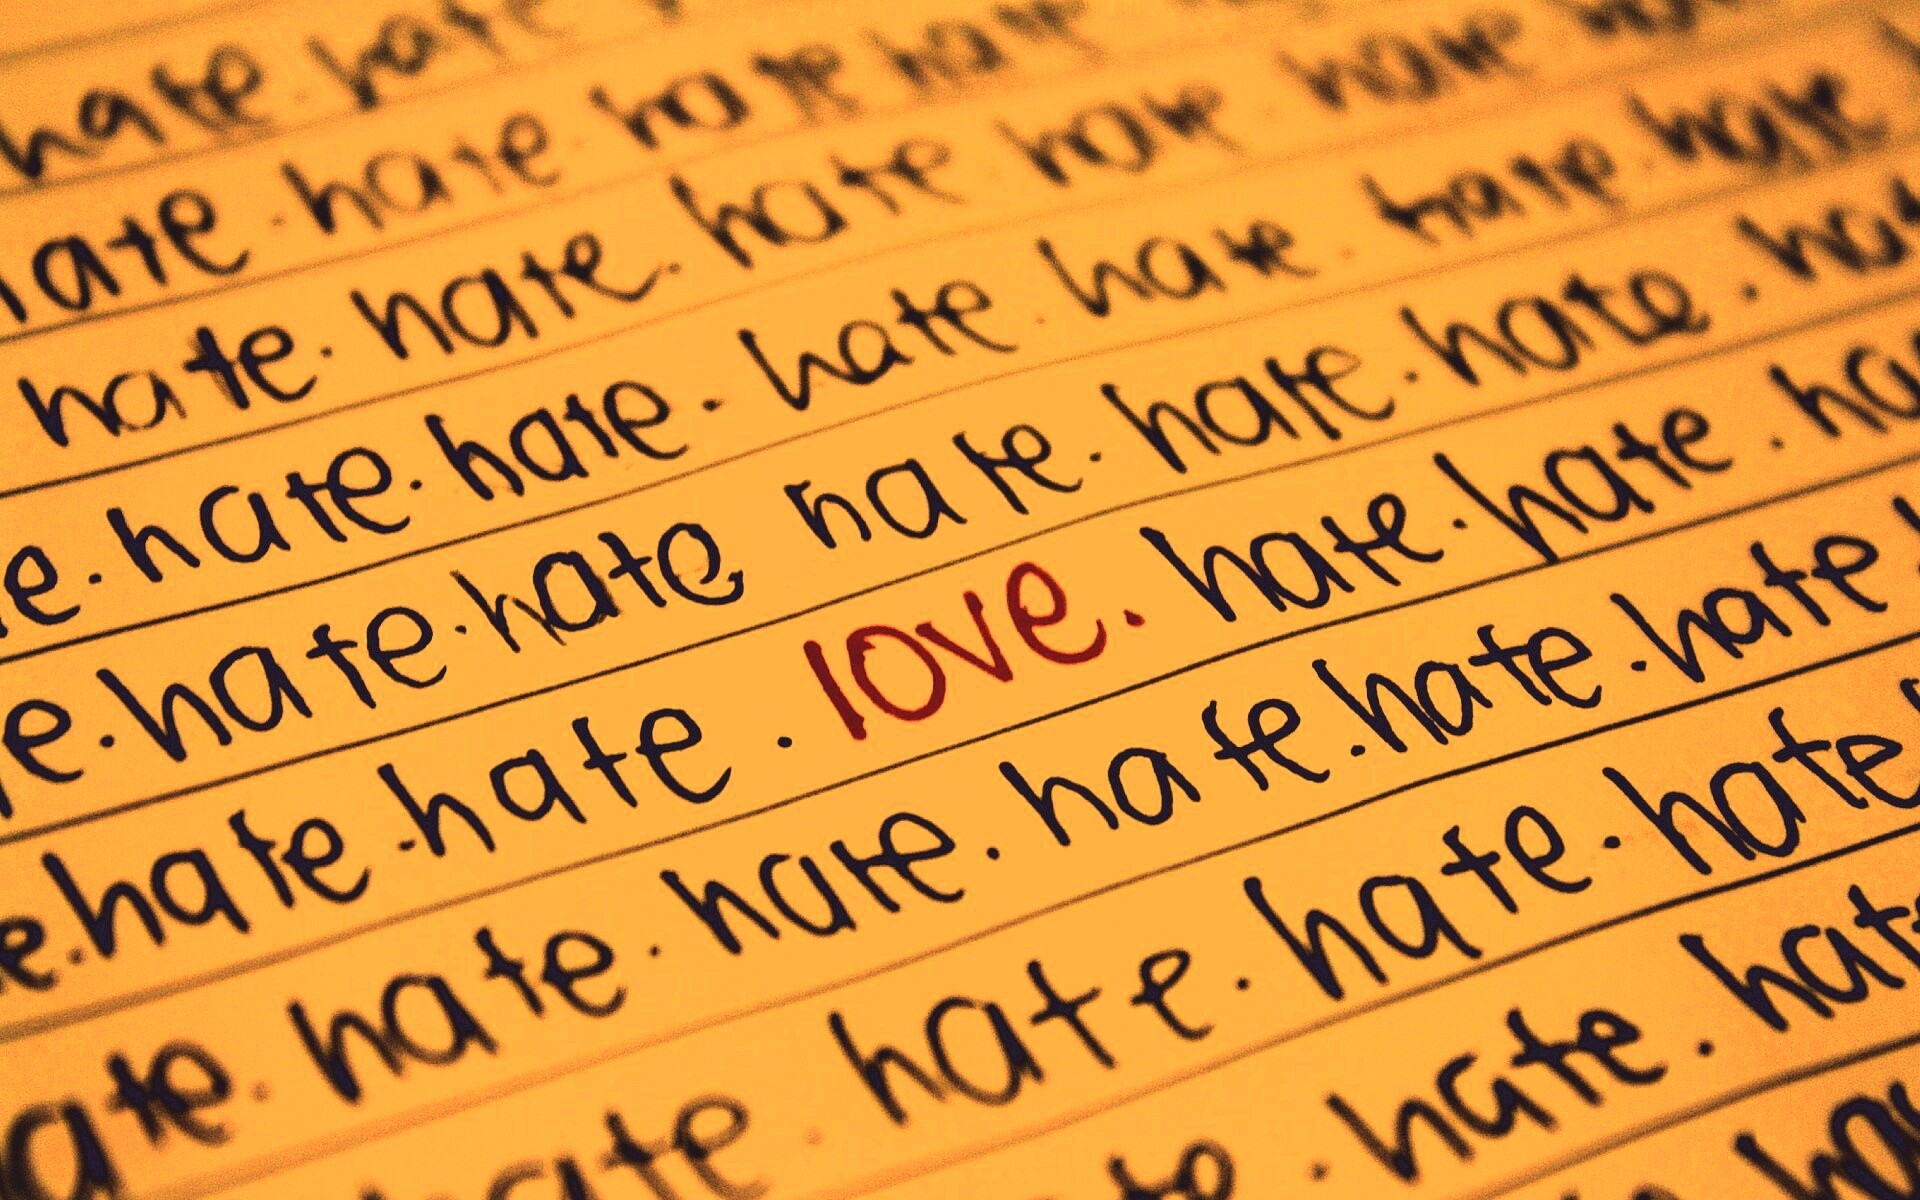 hate. hate
ate. hate. hate hate
hate. hate. hate hate hate
e. hate. hate. hate. hate. hate. hate
e. hate. hate hate. hate. hate. hat
e. hate. hate. love. hate. hate. ha
ate. hate. hate. hate. hate. hate
ate. hate. hate. hate
. hate. hat
ha